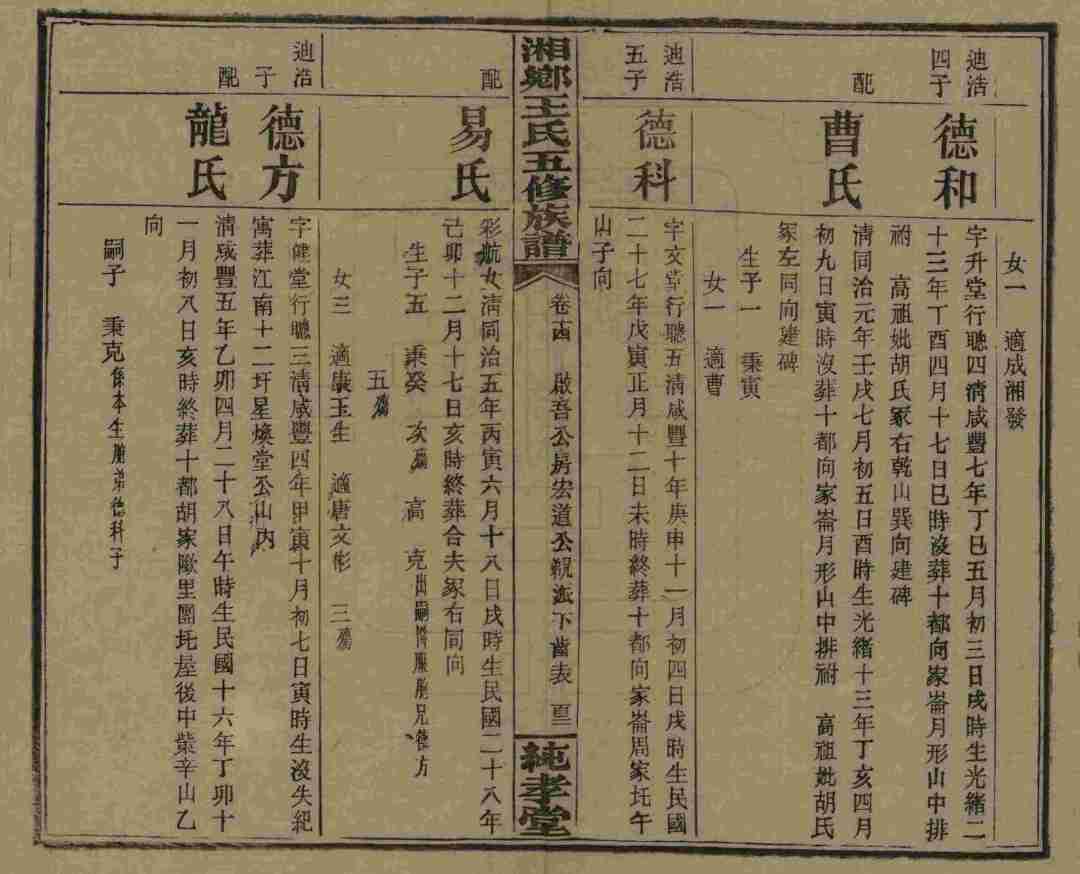 女一 適成湘發
迪浩
四子
德和
字升堂行聰四清咸豐七年丁巳五月初三日戌時生光緒二
十三年丁酉四月十七日巳時沒葬十都向家崙月形山中排
祔 高祖妣胡氏冢右乾山巽向建碑
配
曹氏
清同治元年壬戌七月初五日酉時生光緒十三年丁亥四月
初九日寅時沒葬十都向家崙月形山中排祔 高祖妣胡氏
冢左同向建碑
生子一 秉寅
女一 適曹
迪浩
五子
德科
字文堂行聰五清咸豐十年庚申十一月初四日戌時生民國
二十七年戊寅正月十二日未時終葬十都向家崙周家圫午
山子向
湘鄉王氏五修族譜
卷十四 啟吾公房宏道公親派下齒表
純孝堂
配
易氏
彩航女清同治五年丙寅六月十八日戌時生民國二十八年
己卯十二月十七日亥時終葬合夫冢右同向
生子五 秉癸 次殤 高 克出嗣胞兄德方
五殤
女三 適康玉生 適唐文彬 三殤
迪浩
子
德方
字健堂行聰三清咸豐四年甲寅十月初七日寅時生沒失紀
寓葬江南十二圩星煥堂公山內
配
龍氏
清咸豐五年乙卯四月二十八日午時生民國十六年丁卯十
一月初八日亥時終葬十都胡家歐里團圫屋後中紫辛山乙
向
嗣子 秉克係本生胞弟德科子